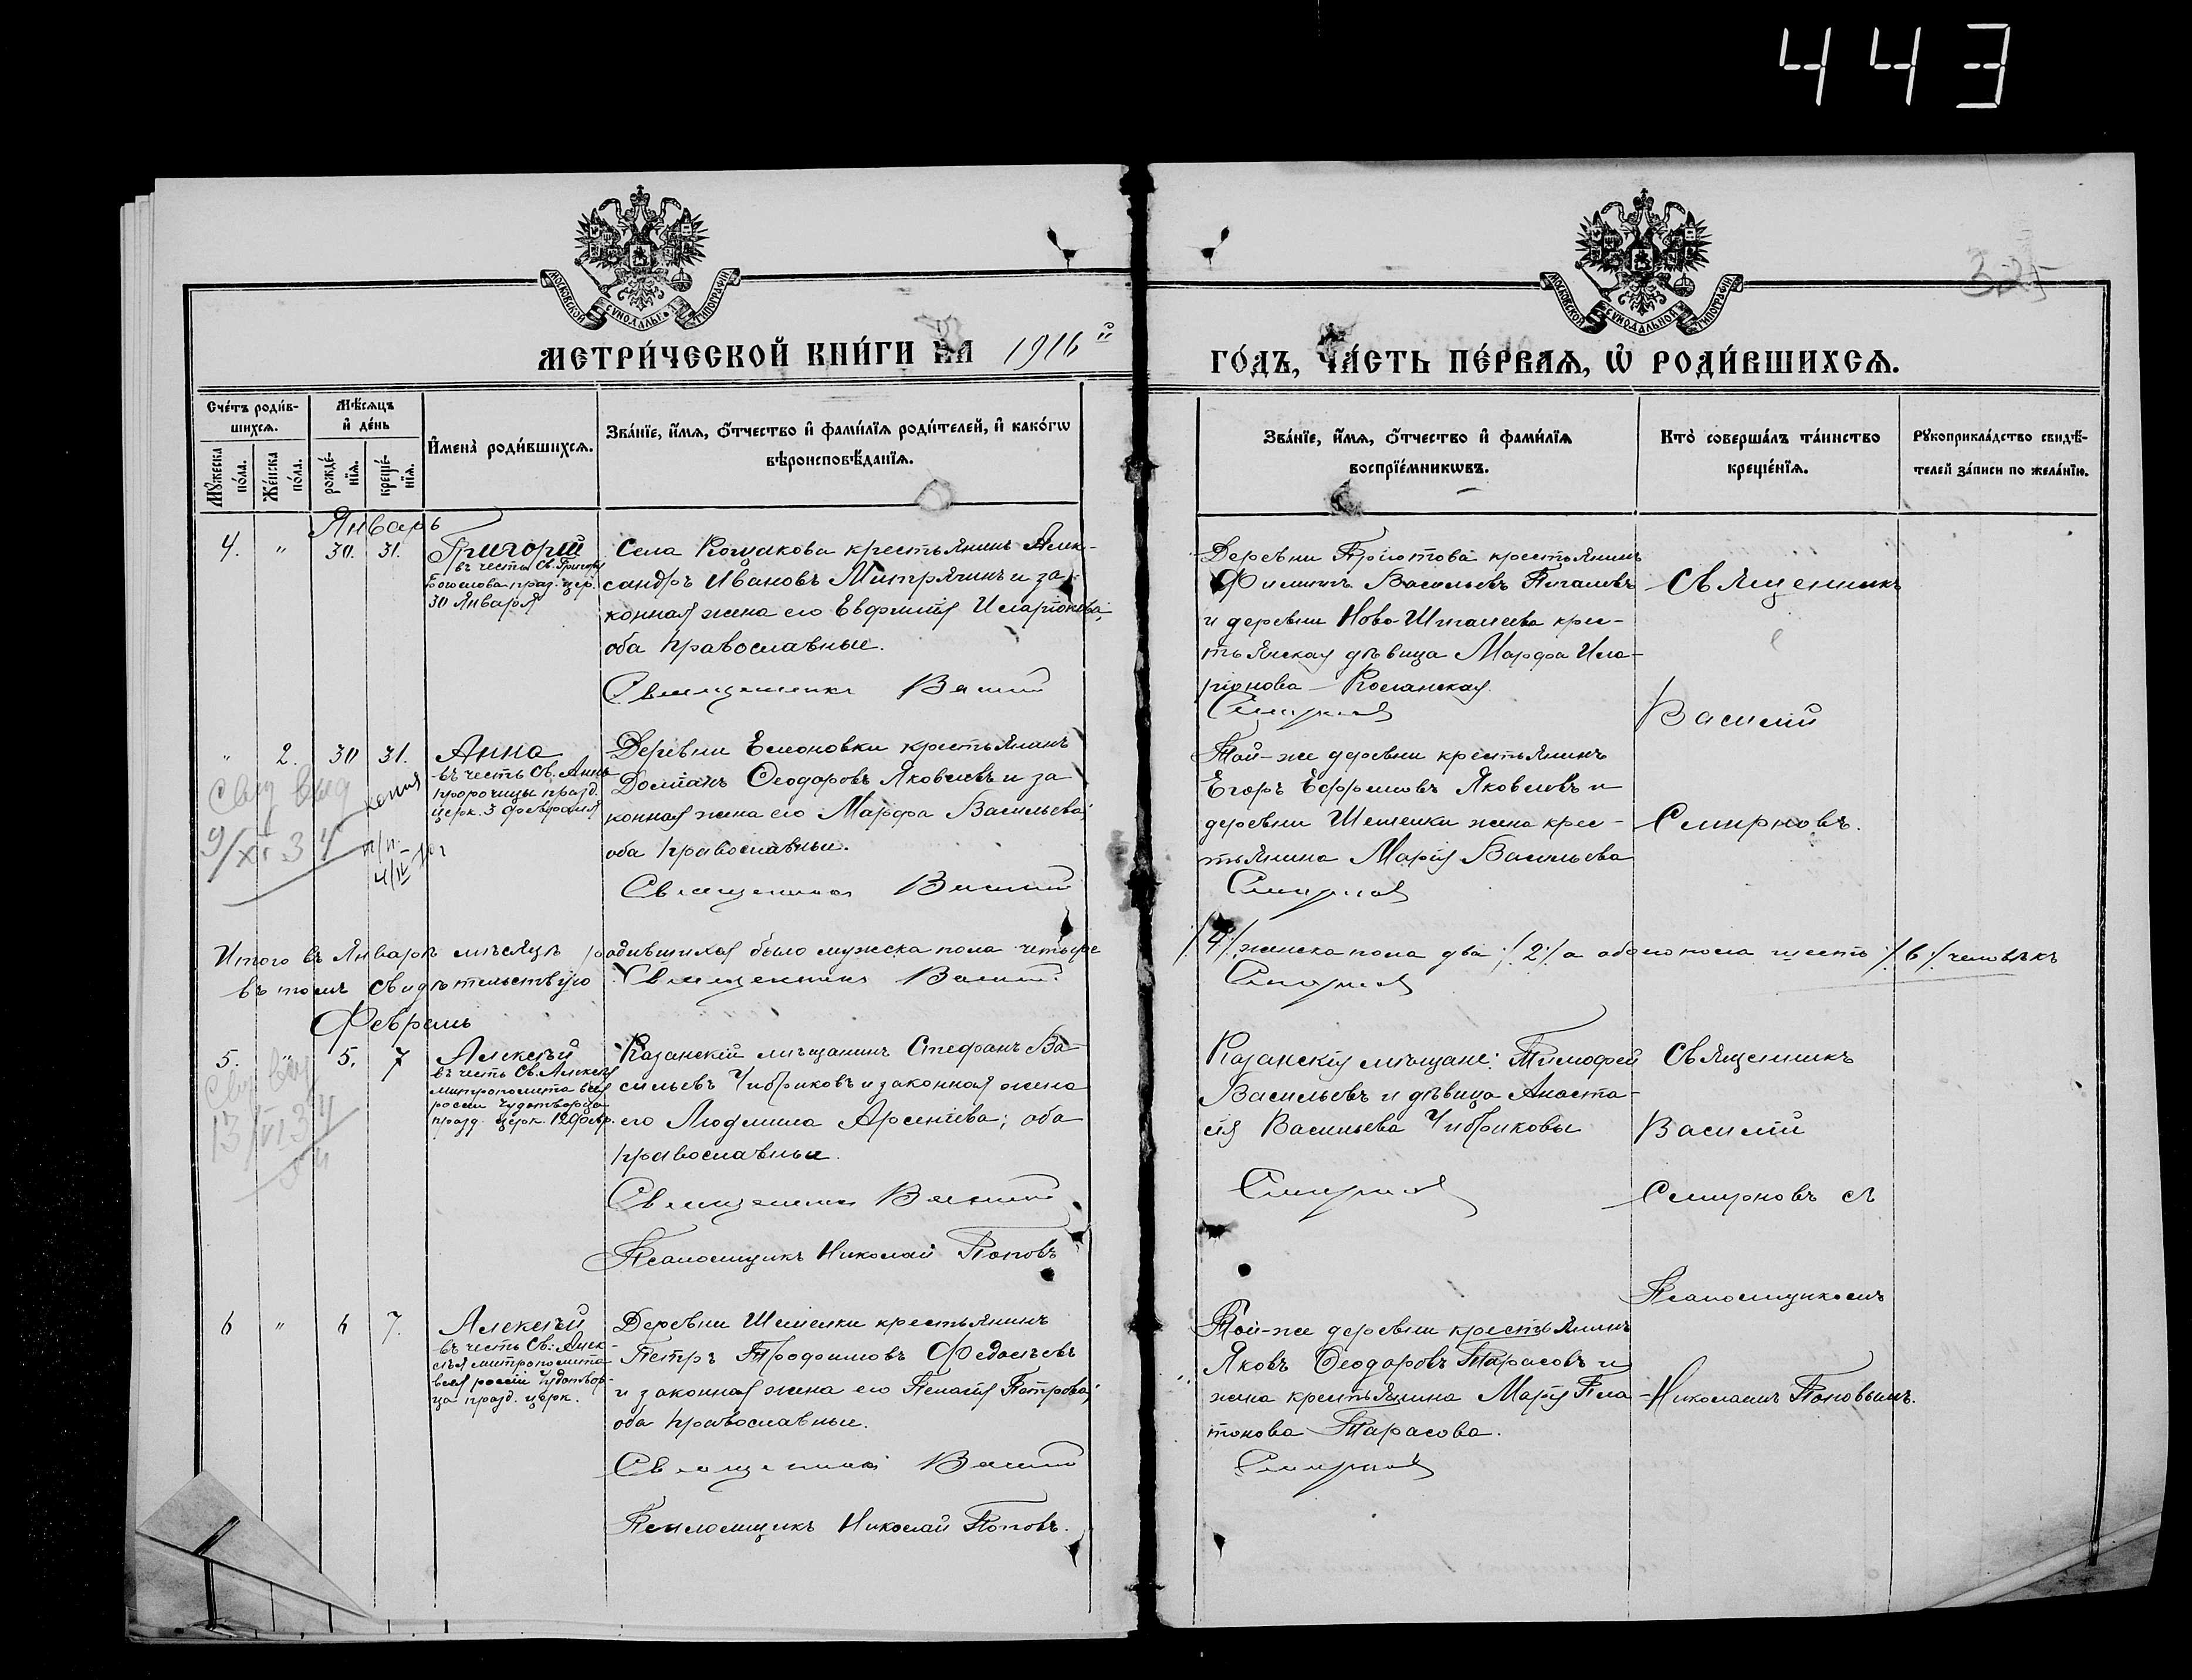 443
325
МОСКОВСКОЙ СѴНОДАЛЬНОЙ ТИПОГРАФІИ
МОСКОВСКОЙ СѴНОДАЛЬНОЙ ТИПОГРАФІИ
МЕТРИ́ЧЕСКОЙ КНИ́ГИ НА 1916й ГО́ДЪ, ЧА́СТЬ ПЕ́РВАѦ, Ѡ҆ РОДИ́ВШИХСѦ.
Сче́тъ роди́в-
шихсѧ.
Мѣ́сѧцъ
и҆ де́нь
Мꙋ́жеска
по́ла.
Же́нска
по́ла.
рожде́-
нїѧ.
креще́-
нїѧ.
И҆мена̀ роди́вшихсѧ.
Зва́нїе, и҆́мѧ, ѻ҆́тчество и҆ фами́лїѧ роди́телей, и҆ како́гѡ
вѣроисповѣ́данїѧ.
Зва́нїе, и҆́мѧ, ѻ҆́тчество и҆ фами́лїѧ
воспрїе́мникѡвъ.
Кто̀ соверша́лъ та́инство
креще́нїѧ.
Рꙋкоприкла́дство свидѣ́-
телей за́писи по жела́нїю.
Январь
4. " 30. 31.
Григорій
въ честь Св. Григорія
Богослова празд. цер.
30 Января
Села Кощакова крестьянинъ Алек-
сандръ Ивановъ Митрягинъ и за-
конная жена его Евфимія Иларіонова;
оба православные.
Священникъ Василій
Деревни Тріотова крестьянинъ
Филиппъ Васильевъ Пигалевъ
и деревни Ново-Шигалеева крес-
тьянская дѣвица Марфа Ила-
ріонова
Смирновъ
Священникъ
Василій
Смирновъ.
" 2. 30 31.
Анна
въ честь Св. Анны
пророчицы празд.
церк. 3 февраля
Свид выд
9/XI 34
копия
Деревни Ермоновки крестьянинъ
Долматъ Ѳеодоровъ Яковлевъ и за
конная жена его Марфа Васильева;
оба православные.
Священникъ Василій
Той-же деревни крестьянинъ
Егоръ Ефремовъ Яковлевъ и
деревни Шемелки жена крес-
тьянина Марія Васильева
Смирновъ
Итого въ Январѣ мѣсяцѣ родившихся было мужска пола четыре /4/ женска пола два /2/ а обоего пола шесть /6/ человѣкъ
въ томъ свидѣтельствую Священникъ Василій Смирновъ
Февраль
5. " 5. 7
Алексѣй
въ честь Св. Алексѣя
митрополита всея
россіи Чудотворца
празд. церк. 12 февр.
Свид выд
13/VI 34
Казанскій мѣщанинъ Стефанъ Ва-
сильевъ Чибриковъ и законная жена
его Людмила Арсеніева; оба
православные.
Священникъ Василій
Псаломщикъ Николай Поповъ
Казанскія мѣщане: Тимофей
Васильевъ и дѣвица Анаста-
сія Васильева Чибриковы
Смирновъ
Священникъ
Василій
Смирновъ съ
Псаломщикомъ
Николаемъ Поповымъ.
6 " 6 7.
Алексѣй
въ честь Св. Алек-
сѣя митрополита
всея россіи Чудотвор-
ца празд. церк.
Деревни Шемелки крестьянинъ
Петръ Трофимовъ Федосѣевъ
и законная жена его Пелагія Петрова;
оба православные.
Священникъ Василій
Псаломщикъ Николай Поповъ.
Той-же деревни крестьянинъ
Яковъ Ѳеодоровъ Тарасовъ и
жена крестьянина Марія Пла-
тонова Тарасова.
Смирновъ